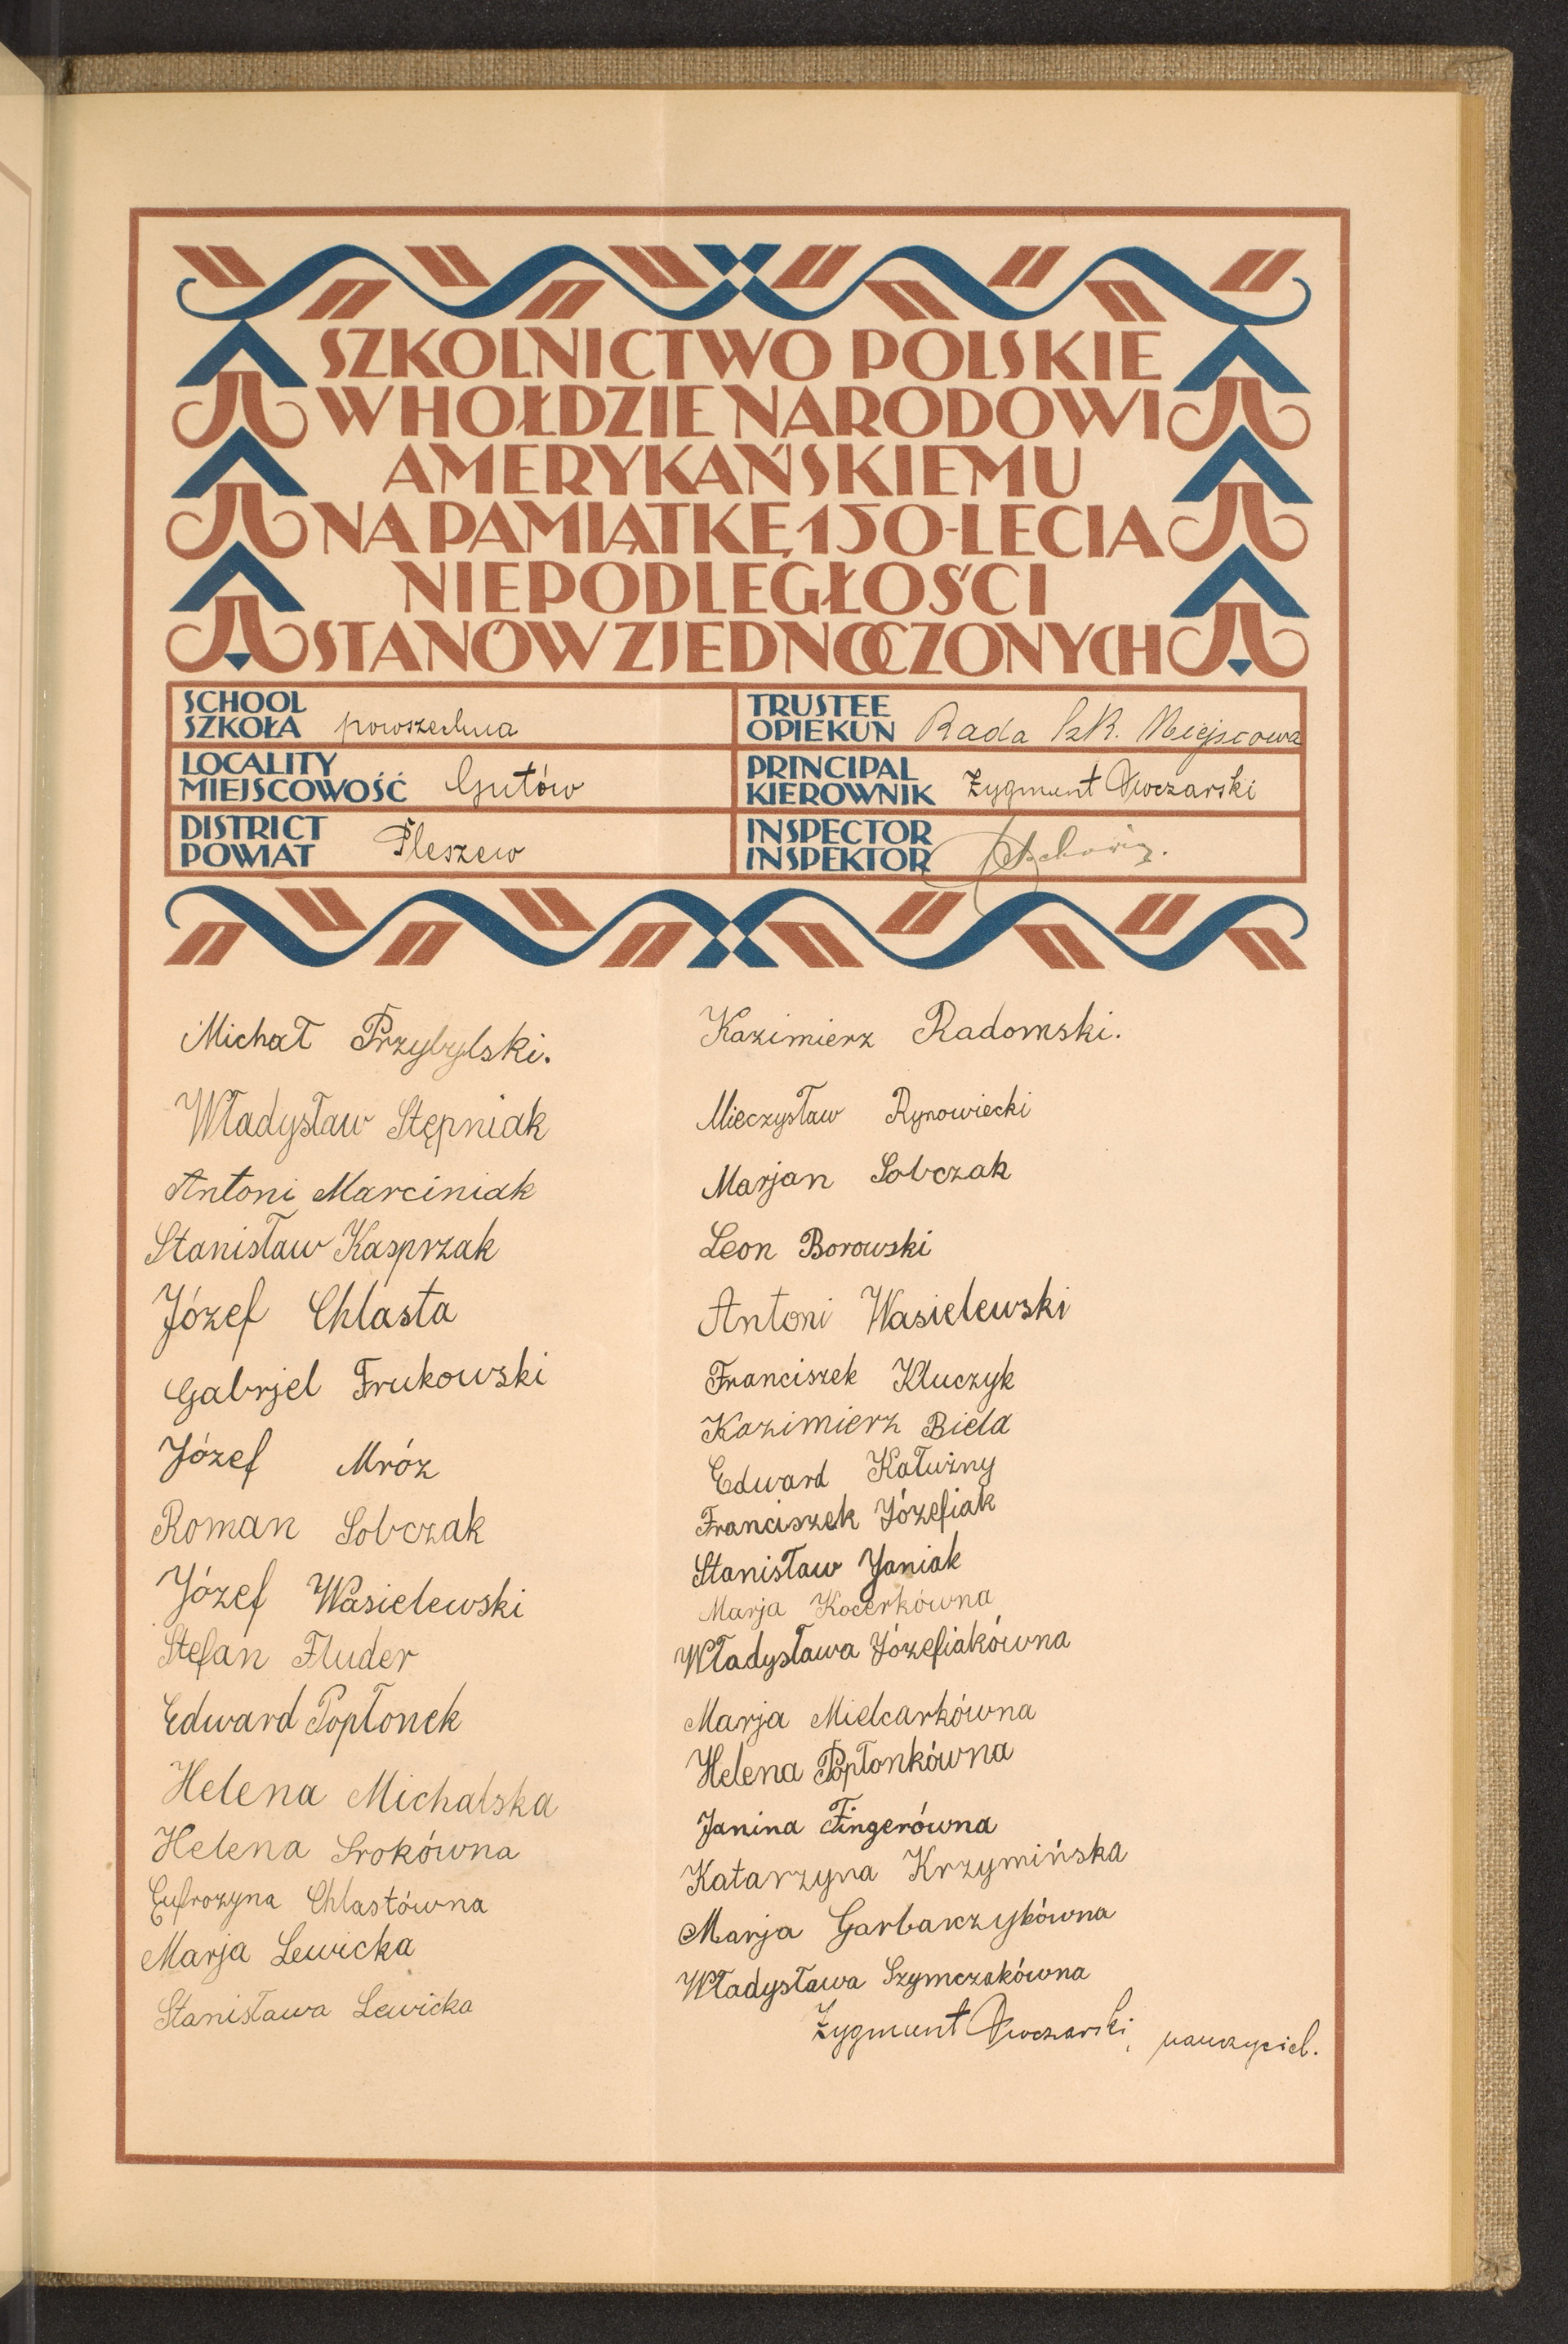 SZKOLNICTWO POLSKIE
W HOŁDZIE NARODOWI
AMERYKAŃSKIEMU
NA PAMIĄTKĘ 150-LECIA
NIEPODLEGŁOŚCI
STANÓW ZJEDNOCZONYCH
SCHOOL
SZKOŁA powszechna
LOCALITY
MIEJSCOWOŚĆ Gutów
DISTRICT
POWIAT Pleszew
TRUSTEE
OPIEKUN Rada Szk. Miejscowa
PRINCIPAL
KIEROWNIK Zygmunt Owczarski
INSPECTOR
INSPEKTOR
Michał Przybylski.
Władysław Stępniak
Antoni Marciniak
Stanisław Kasprzak
Józef Chlasta
Gabrjel Frukowski
Józef Mróz
Roman Sobczak
Józef Wasielewski
Stefan Fluder
Edward Popłonek
Helena Michalska
Helena Srokówna
Eufrozyna Chlastówna
Marja Lewicka
Stanisława Lewicka
Kazimierz Radomski.
Mieczysław Rynowiecki
Marjan Sobczak
Leon Borowski
Antoni Wasielewski
Franciszek Kluczyk
Kazimierz Biela
Edward Kałużny
Franciszek Józefiak
Stanisław Janiak
Marja Kocerkówna
Władysława Józefiakówna
Marja Mielcarkówna
Helena Popłonkówna
Janina Fingerówna
Katarzyna Krzymińska
Marja Garbarczykówna
Władysława Szymczakówna
Zygmunt Owczarski, nauczyciel.